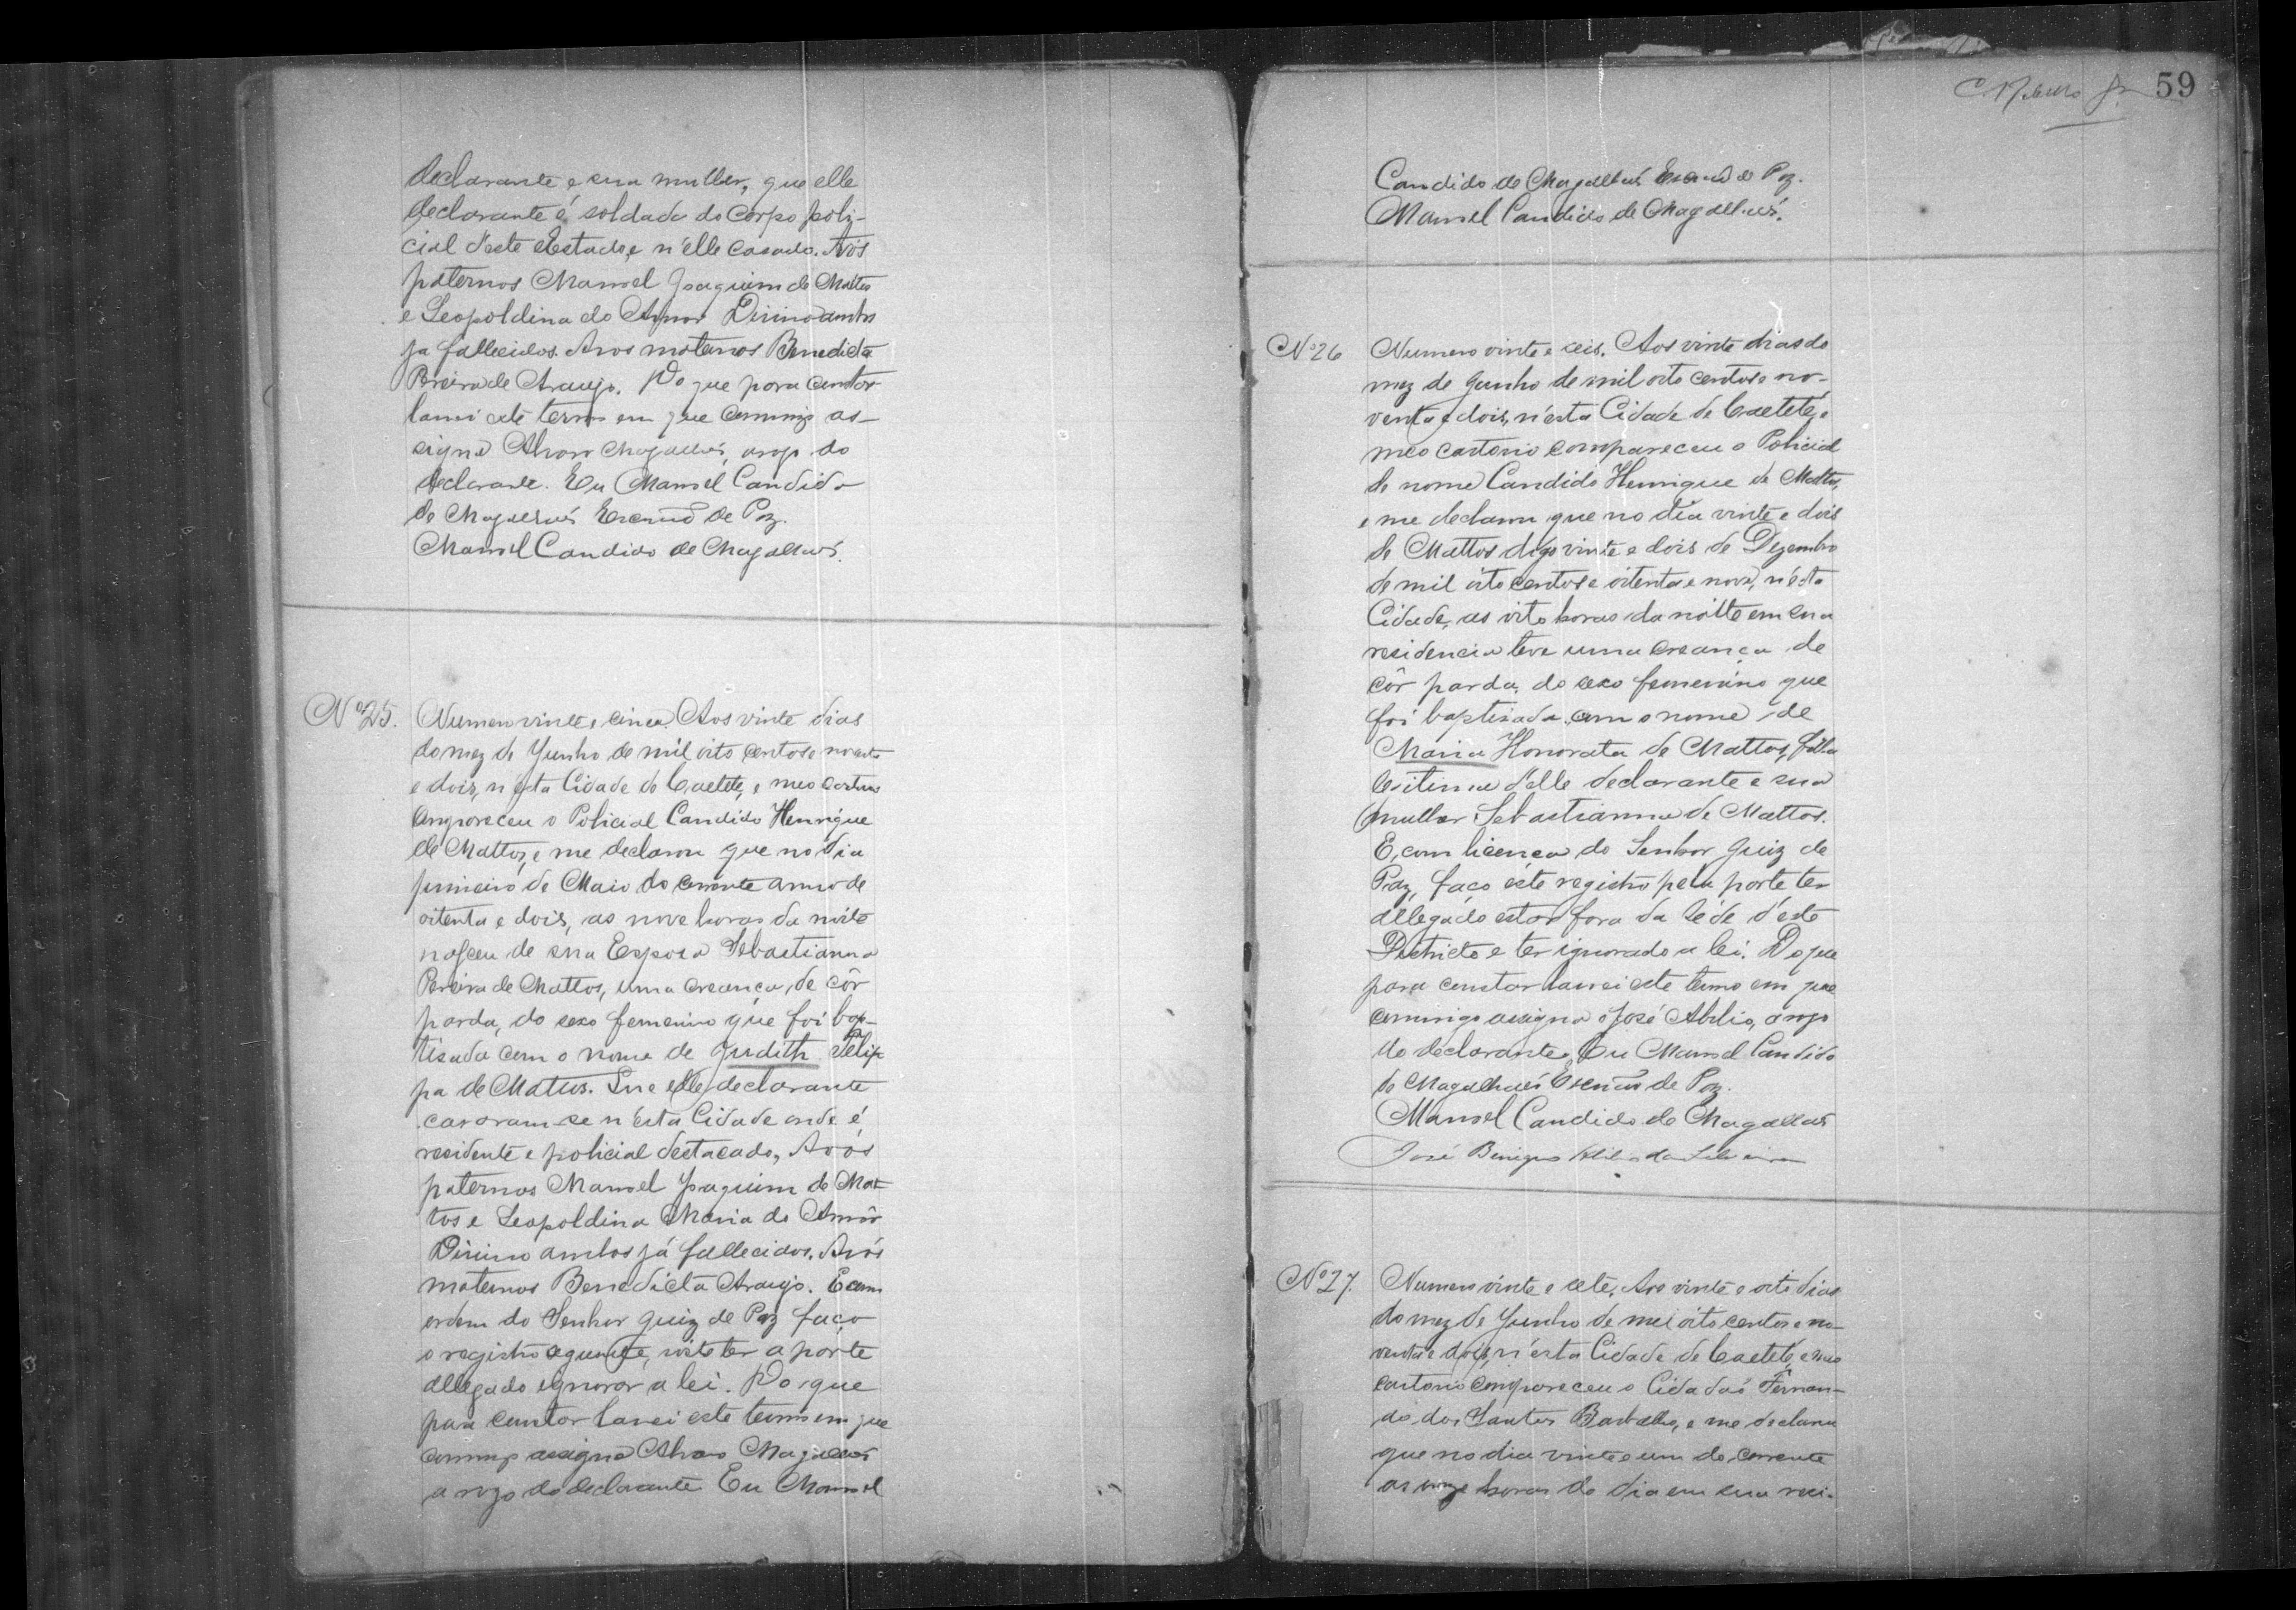 declarante e sua mulher, que elle
declarante é soldado do Corpo poli-
cial d'este Estado, e n'elle casado. Avós
paternos Manoel Joaquim de Mattos
e Leopoldina do Amor Divino ambos
ja fallecidos. Avos maternos Benedicta
Pereira de Araujo. Do que para constar
lavrei este termo em que commigo as-
signa Alvaro Magalhães, arogo do
declarante. Eu Manoel Candido
de Magalhães Escrivão de Paz.
Manoel Candido de Magalhães.
Nº 25. Numero vinte e cinco. Aos vinte dias
do mez de Junho de mil oito centos e noventa
e dois, n'esta Cidade de Caeteté, e meo cartorio
compareceu o Policial Candido Henrique
de Mattos, e me declarou que no dia
primeiro de Maio do corrente anno de
oitenta e dois, as nove horas da noite
nasceu de sua Esposa Sebastianna
Pereira de Mattos, uma creança, de côr
parda, do sexo femenino que foi bap-
tisada com o nome de Judith Felip
pa de Mattos. Que elle declarante
casaram-se n'esta Cidade onde é
residente e policial destacado, Avós
paternos Manoel Joaquim de Mat-
tos e Leopoldina Maria do Amôr
Divino ambos já fallecidos. Avós
maternos Benedicta Araujo. E com
ordem do Senhor Juiz de Paz faço
o registro seguinte, visto ter a parte
allegado ignorar a lei. Do que
para constar lavrei este termo em que
commigo assigna Alvaro Magalhães
a rogo do declarante Eu Manoel
59
Candido de Magalhães Escrivão de Paz.
Manoel Candido de Magalhães.
Nº 26 Numero vinte e seis. Aos vinte dias do
mez de Junho de mil oito centos e no-
venta e dois, n'esta Cidade de Caeteté, e
meo cartorio compareceu o Policial
de nome Candido Henrique de Mattos,
e me declarou que no dia vinte e dois
de Mattos digo vinte e dois de Dezembro
de mil oito centos e oitenta e nove, n'esta
Cidade, as oito horas da noitte em sua
residencia teve uma creança de
côr parda, do sexo femenino que
foi baptisada com o nome de
Maria Honorata de Mattos, filha
legitima d'elle declarante e sua
mulher Sebastianna de Mattos.
E, com licença do Senhor Juiz de
Paz, faço este registro pela parte ter
allegado estar fora da séde d'este
Districto e ter ignorado a lei. Do que
para constar lavrei este termo em que
commigo assigna o José Abilio, a rogo
do declarante, Eu Manoel Candido
de Magalhães Escrivão de Paz.
Manoel Candido de Magalhães
José Benigno Abilio da
Nº 27. Numero vinte e sete. Aos vinte e oito dias
do mez de Junho de mil oito centos e no-
venta e dois, n'esta Cidade de Caeteté, e meo
cartorio compareceu o Cidadão Fernan-
do dos Santos e me declarou
que no dia vinte e um do corrente
as onze horas do dia em sua resi-